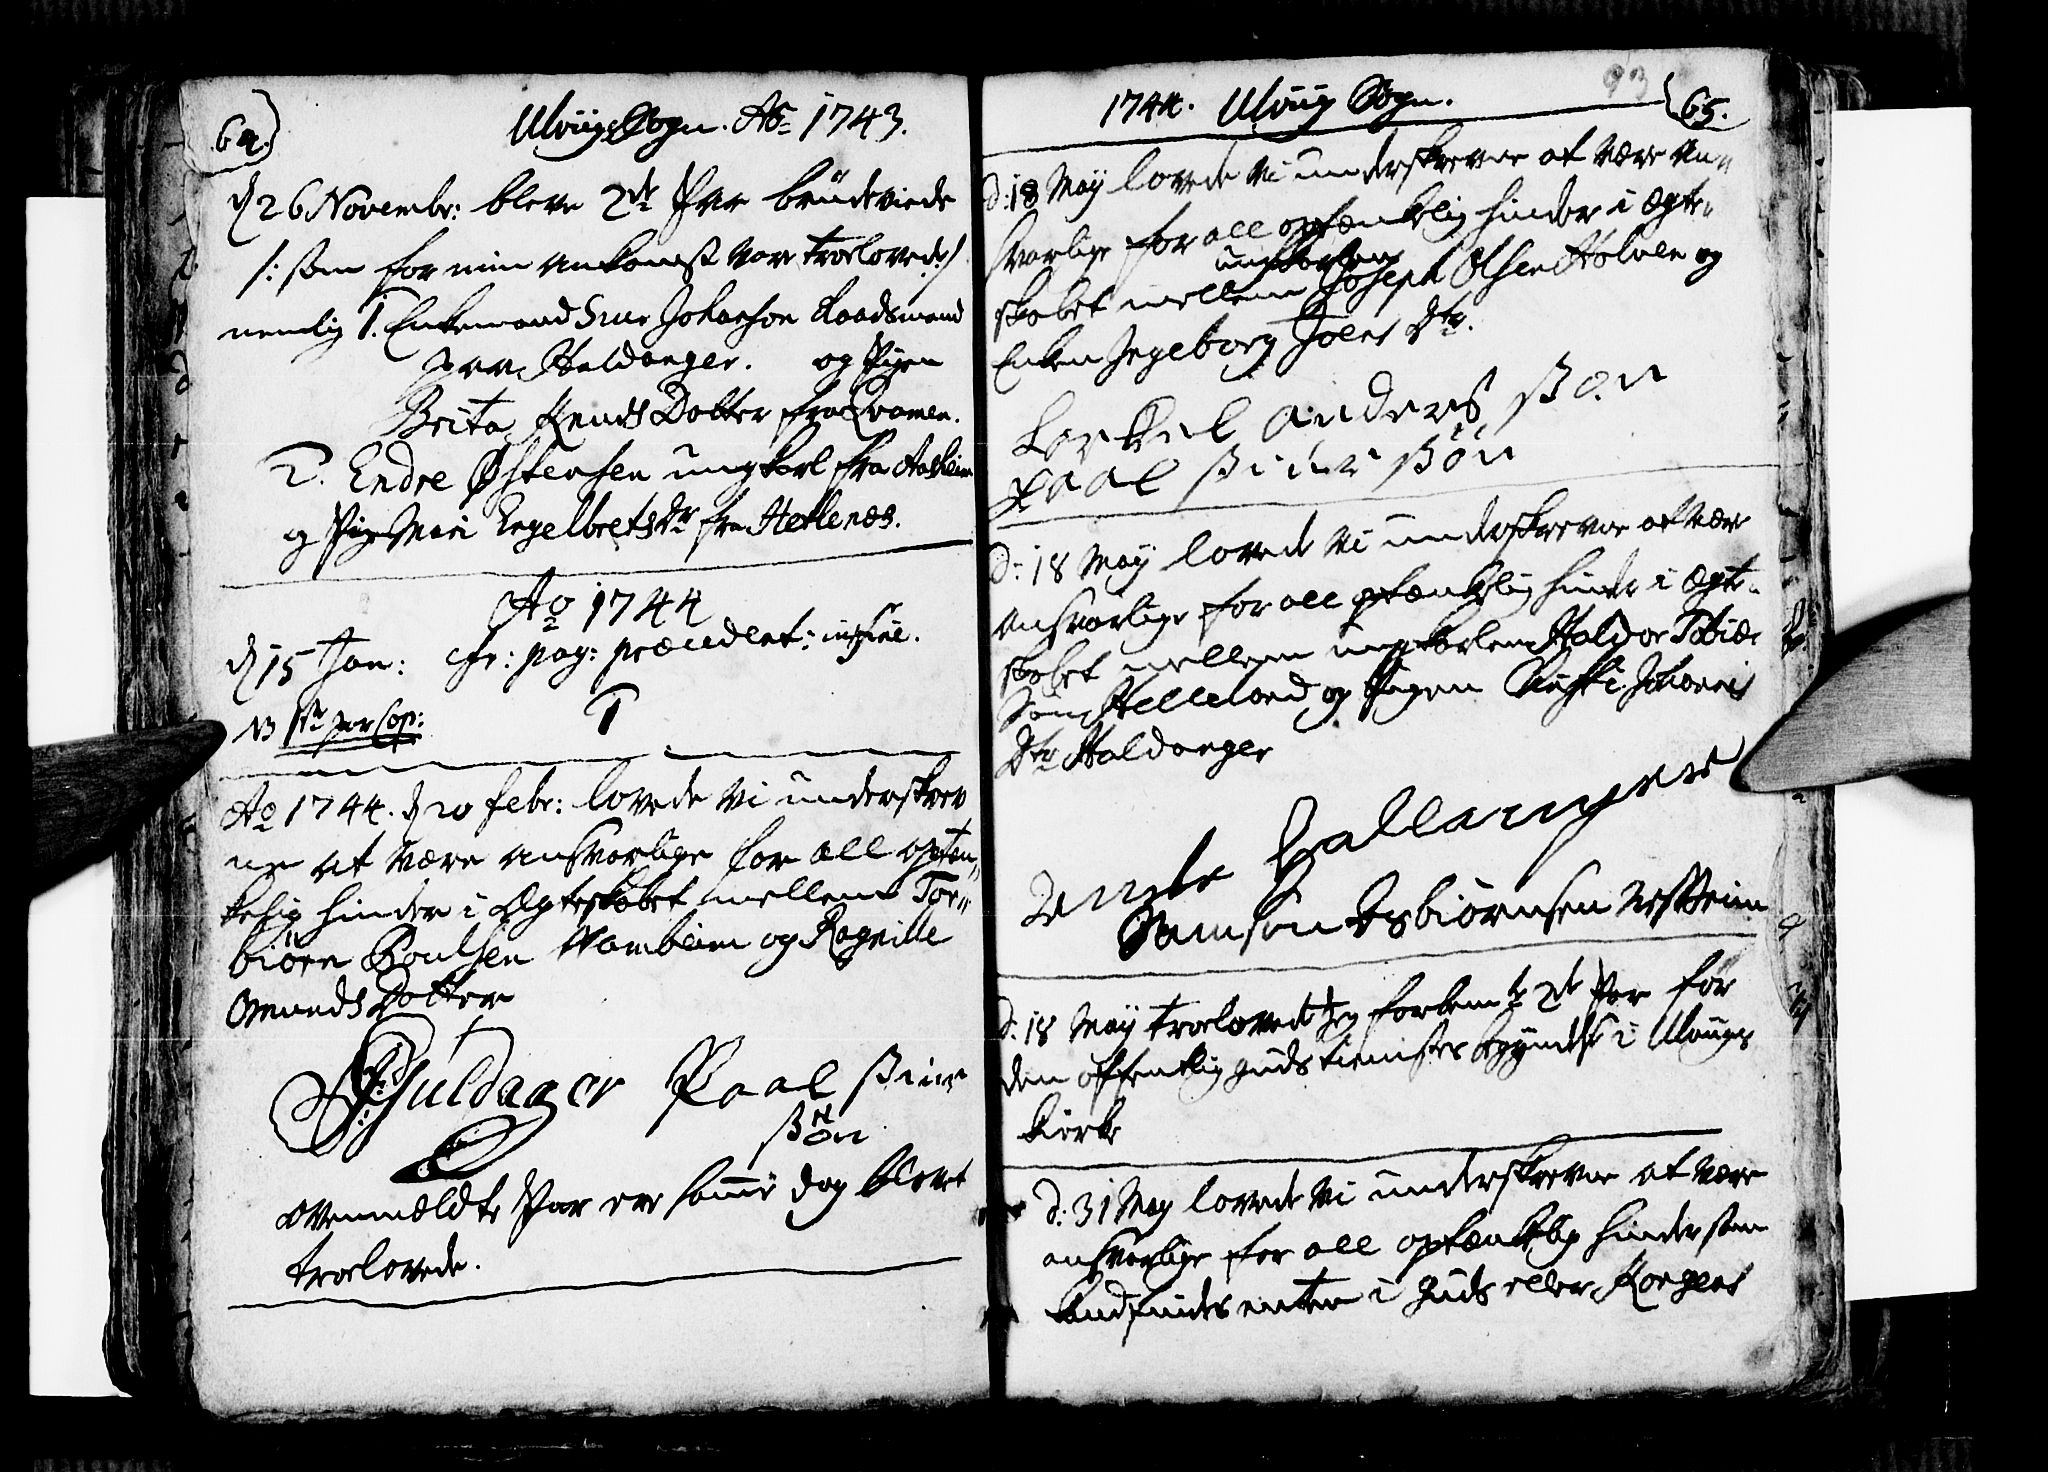 64.
Ulvigs Sogn. Ao 1743.
d 26 Novembr: bleve 2de Par brudeviede
/: som for min ankomst vare troelovede:/
nemlig 1. Enkemand Siur Johanson Raadsmand
paa Haldanger. og Pigen
Brita Knuds Dotter fra Qvamen.
2. Endre Østensen ungkarl fra Aasheim
og Pige Mari Engelbrets Dr fra Hetlenæs.
Ao 1744
d 15 Jan: cfr: pag: præcedent: in fine.
NB 1ste par Cop: 1
Ao 1744. d 20 febr: lovede vi underskrev
ne at være ansvarlige for all optæn„
kelig hinder i Ægteskabet mellem Tor„
biörn Poulsen Vambheim og Ragnille
Omunds Dotter
Huldager Paal Siur
Søn
Ovenmældte Par ere samme dag blevet
troelovede.
93
1744. Ulvig Sogn. 65.
d: 18 Maij lovede vi underskrevne at være an„
svarlige for all optænkelig hinder i Ægte„
skabet mellem ungkarlen Joseph Olsen Holven og
Enken Ingeborg Joens Dtr.
Torkel anders Søn
Paal Siur Søn
d: 18 Maij lovede vi underskrevne at være
ansvarlige for all optænkelig hinder i Ægte„
skabet mellem ungkarlen Haldor Tobiæ
Søn Helleland og Pigen Johannis
Dtr Haldanger
Hallanger
Samson Asbiørnsen Nesheim
d: 18 Maij troelovede jeg forbemte 2de Par for
den offentlig gudstienistes begyndelse i Ulvigs
Kirke
d: 31 Maij lovede vi underskrevne at være
ansvarlige for all optænkelig hinder som
kand findes enten i Guds eller Kongens